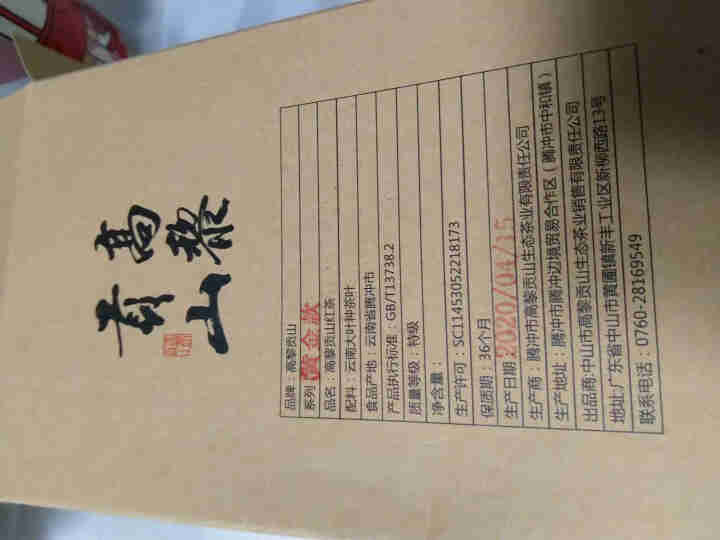 高黎
贡山
品牌：高黎贡山
系列：黄金款
品名：高黎贡山红茶
配料：云南大叶种茶叶
食品产地：云南省腾冲市
产品执行标准：GB/T13738.2
质量等级：特级
净含量：
生产许可：SC11453052218173
保质期：36个月
生产日期：2020/04/15
生产商：腾冲市高黎贡山生态茶业有限责任公司
生产地址：腾冲市腾冲边境贸易合作区（腾冲市中和镇）
出品商:中山市高黎贡山生态茶业销售有限责任公司
地址:广东省中山市黄圃镇新丰工业区新柳西路13号
联系电话：0760-28169549